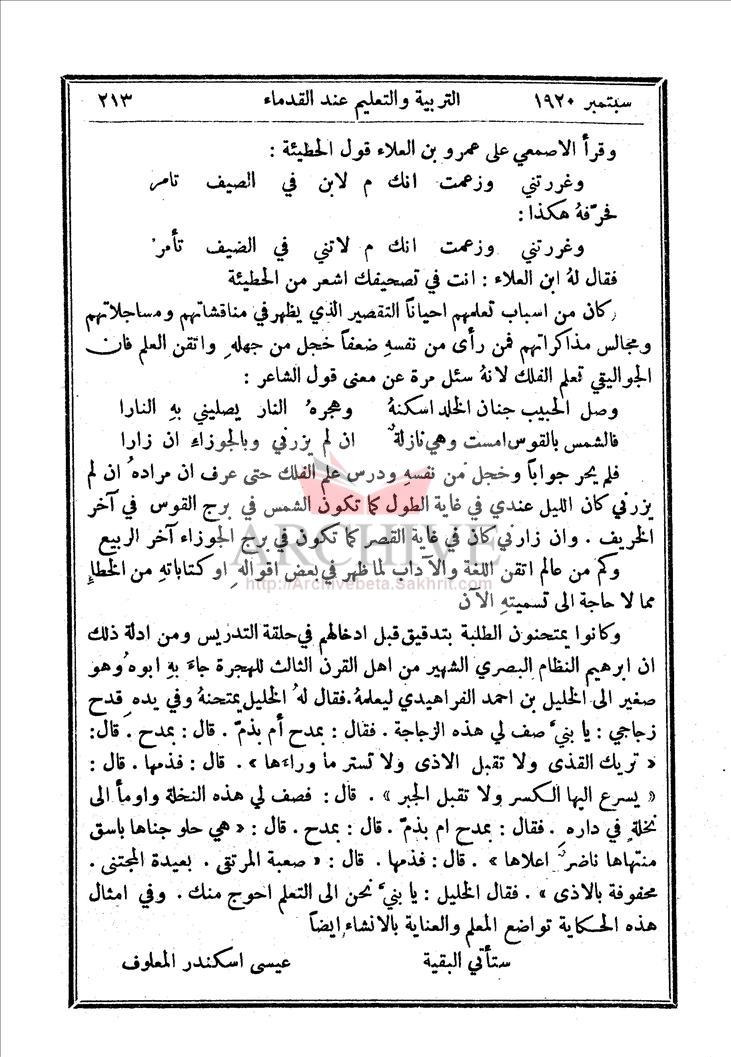 سبتمبر ١٩٢٠ التربية والتعليم عند القدماء ٢١٣
وقرأ الاصمعي على عمرو بن العلاء قول الحطيئة :
وغررتني وزعمت انك م لابن في الصيف تامر
فحرّفهُ هكذا :
وغررتني وزعمت انك م لاتني في الضيف تأمرُ
فقال لهُ ابن العلاء : انت في تصحيفك اشعر من الحطيئة
وكان من اسباب تعلمهم احياناً التقصير الذي يظهر في مناقشاتهم ومساجلاتهم
ومجالس مذاكراتهم فمن رأى من نفسهِ ضعفاً خجل من جهلهِ واتقن العلم فان
الجواليقي تعلم الفلك لانهُ سئل مرة عن معنى قول الشاعر :
وصل الحبيب جنان الخلد اسكنهُ وهجرهُ النار يصليني بهِ النارا
فالشمس بالقوس امست وهي نازلةٌ ان لم يزرني وبالجوزاءِ ان زارا
فلم يحر جواباً وخجل من نفسهِ ودرس علم الفلك حتى عرف ان مرادهُ ان لم
يزرني كان الليل عندي في غاية الطول كما تكون الشمس في برج القوس في آخر
الخريف . وان زارني كان في غاية القصر كما تكون في برج الجوزاء آخر الربيع
وكم من عالم اتقن اللغة والآداب لما ظهر في بعض اقوالهِ او كتاباتهِ من الخطاءِ
مما لا حاجة الى تسميتهِ الآن
وكانوا يمتحنون الطلبة بتدقيق قبل ادخالهم في حلقة التدريس ومن ادلة ذلك
ان ابرهيم النظام البصري الشهير من اهل القرن الثالث للهجرة جاءَ بهِ ابوهُ وهو
صغير الى الخليل بن احمد الفراهيدي ليعلمهُ . فقال لهُ الخليل يمتحنهُ وفي يدهِ قدح
زجاجي : يا بنيَّ صف لي هذه الزجاجة . فقال : بمدح أم بذمّ . قال : بمدح . قال :
« تريك القذى ولا تقبل الاذى ولا تستر ما وراءَها » . قال : فذمها . قال :
« يسرع اليها الكسر ولا تقبل الجبر » . قال : فصف لي هذه النخلة واومأ الى
نخلةٍ في دارهِ . فقال : بمدح ام بذمّ . قال : بمدح . قال : « هي حلو جناها باسق
منتهاها ناضرٌ اعلاها » . قال : فذمها . قال : « صعبة المرتقى . بعيدة المجتنى .
محفوفة بالاذى » . فقال الخليل : يا بنيَّ نحن الى التعلم احوج منك . وفي امثال
هذه الحكاية تواضع المعلم والعناية بالانشاءِ ايضاً
ستأتي البقية عيسى اسكندر المعلوف
ARCHIVE
http://Archivebeta.Sakhrit.com